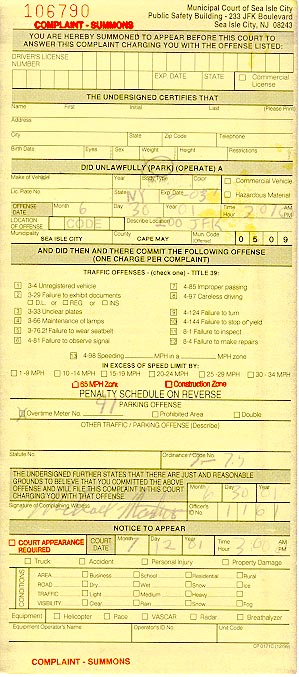 106790
COMPLAINT - SUMMONS
Municipal Court of Sea Isle City
Public Safety Building - 233 JFK Boulevard
Sea Isle City, NJ 08243
YOU ARE HEREBY SUMMONED TO APPEAR BEFORE THIS COURT TO
ANSWER THIS COMPLAINT CHARGING YOU WITH THE OFFENSE LISTED:
DRIVER'S LICENSE
NUMBER
EXP DATE STATE Commercial
License
THE UNDERSIGNED CERTIFIES THAT
Name First Initial Last (Please Print)
Address
City State Zip Code Telephone
Birth Date Eyes Sex Weight Height Restrictions
DID UNLAWFULLY (PARK) (OPERATE) A
Make of Vehicle Year Body Type Color Commercial Vehicle
Lic. Plate No. State Exp. Date Hazardous Material
NY 03
OFFENSE
DATE
Month 6 Day 30 Year Time
Hour
LOCATION
OF OFFENSE
CODE Describe Location
200 JFK
Municipality County Mun. Code
Offense
SEA ISLE CITY CAPE MAY 0509
AND DID THEN AND THERE COMMIT THE FOLLOWING OFFENSE
(ONE CHARGE PER COMPLAINT)
TRAFFIC OFFENSES - (check one) - TITLE 39:
3-4 Unregistered vehicle 4-85 Improper passing
3-29 Failure to exhibit documents 4-97 Careless driving
D.L. or REG INS
3-33 Unclear plates 4-124 Failure to turn
3-66 Maintenance of lamps 4-144 Failure to stop or yield
3-76.2f Failure to wear seatbelt 8-1 Failure to inspect
4-81 Failure to observe signal 8-4 Failure to make repairs
4-98 Speeding MPH in a MPH zone
IN EXCESS OF SPEED LIMIT BY:
1-9 MPH 10-14 MPH 15-19 MPH 20-24 MPH 25-29 MPH 30-34 MPH
65 MPH Zone Construction Zone
PENALTY SCHEDULE ON REVERSE
PARKING OFFENSE
Overtime Meter No. 41 Prohibited Area Double
OTHER TRAFFIC / PARKING OFFENSE (Describe)
Statute No. Ordinance / Code No.
THE UNDERSIGNED FURTHER STATES THAT THERE ARE JUST AND REASONABLE
GROUNDS TO BELIEVE THAT YOU COMMITTED THE ABOVE
OFFENSE AND WILL FILE THIS COMPLAINT IN THIS COURT
CHARGING YOU WITH THAT OFFENSE
Month Day Year
30
Signature of Complaining Witness Officer's
ID No. 1161
NOTICE TO APPEAR
COURT APPEARANCE
REQUIRED
COURT
DATE
Month 7 Day 12 Year 01 Time
Hour 3:00 PM
Truck Accident Personal Injury Property Damage
CONDITIONS
AREA Business School Residential Rural
ROAD Dry Wet Snow Ice
TRAFFIC Light Medium Heavy
VISIBILITY Clear Rain Snow Fog
Equipment Helicopter Pace VASCAR Radar Breathalyzer
Equipment Operator's Name Operator's ID No. Unit Code
COMPLAINT - SUMMONS